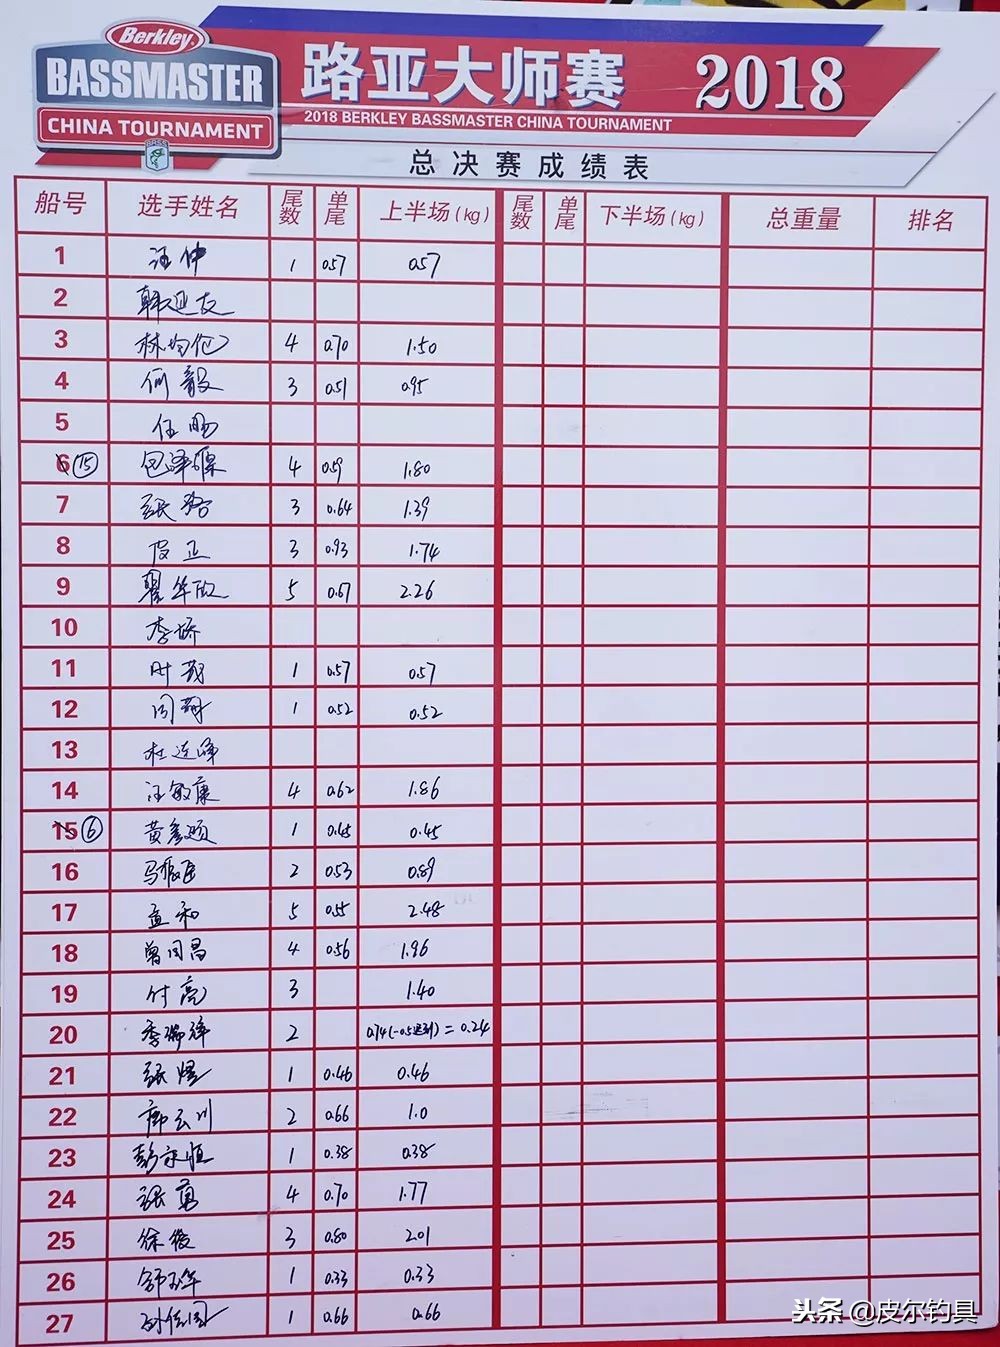 Berkley
BASSMASTER
CHINA TOURNAMENT
路亚大师赛 2018
2018 BERKLEY BASSMASTER CHINA TOURNAMENT
总决赛成绩表
船号 选手姓名 尾数 单尾 上半场(kg) 尾数 单尾 下半场(kg) 总重量 排名
1 汪伸 1 0.57 0.57
2 韩亚友
3 林均伦 4 0.70 1.50
4 何毅 3 0.51 0.95
5 任旸
6 15 包泽 4 0.59 1.80
7 张路 3 0.64 1.39
8 皮正 3 0.93 1.74
9 翟华 5 0.67 2.26
10 李娇
11 叶茂 1 0.57 0.57
12 周 1 0.52 0.52
13 杜连峰
14 汪敏康 4 0.62 1.86
15 6 黄 1 0.45 0.45
16 马振臣 2 0.53 0.89
17 孟和 5 0.55 2.48
18 曾同昌 4 0.56 1.96
19 付亮 3 1.40
20 季瑞 2 0.74(-0.5迟到)=0.24
21 张煜 1 0.46 0.46
22 云川 2 0.66 1.0
23 彭家恒 1 0.38 0.38
24 张勇 4 0.70 1.77
25 徐俊 3 0.80 2.01
26 1 0.33 0.33
27 1 0.66 0.66
头条@皮尔钓具